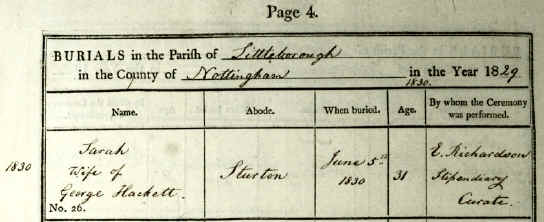 Page 4.
BURIALS in the Parish of Littleborough
in the County of Nottingham in the Year 1829
1830.
Name. Abode. When buried. Age. By whom the Ceremony was performed.
1830
Sarah
Wife of
George Hackett.
No. 26.
Sturton
June 5th
1830
31
E. Richardson
Stipendiary
Curate.